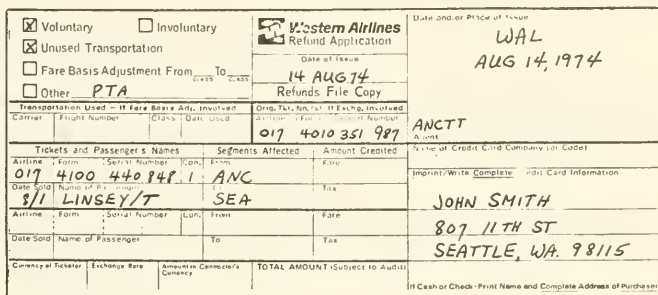 X Voluntary Involuntary
X Unused Transportation
Fare Basis Adjustment From To
CLASS CLASS
Other PTA
Western Airlines
Refund Application
Date of Issue
14 AUG 74
Refunds File Copy
Date and/or Place of Issue
WAL
AUG 14, 1974
ANCTT
Agent
Transportation Used – If Fare Basis Adj. Involved
Carrier Flight Number Class Date Used
Orig. Tkt. No./s) If Exchg. Involved
Airline Form Number
017 4010 351 987
Tickets and Passenger's Names Segments Affected Amount Credited
Airline Form Serial Number Cpn. From Fare
017 4100 440 848 1 ANC
Date Sold Name of Tax
8/1 LINSEY/T SEA
Airline Form Serial Number Cpn. From Fare
Date Sold Name of Passenger To Tax
Currency of Ticketor Exchange Rate Amount in Currency TOTAL AMOUNT (Subject to Audit)
Name of Credit Card Company (or Code)
Imprint/Write Complete Credit Card Information
JOHN SMITH
807 11TH ST
SEATTLE, WA. 98115
If Cash or Check - Print Name and Complete Address of Purchaser